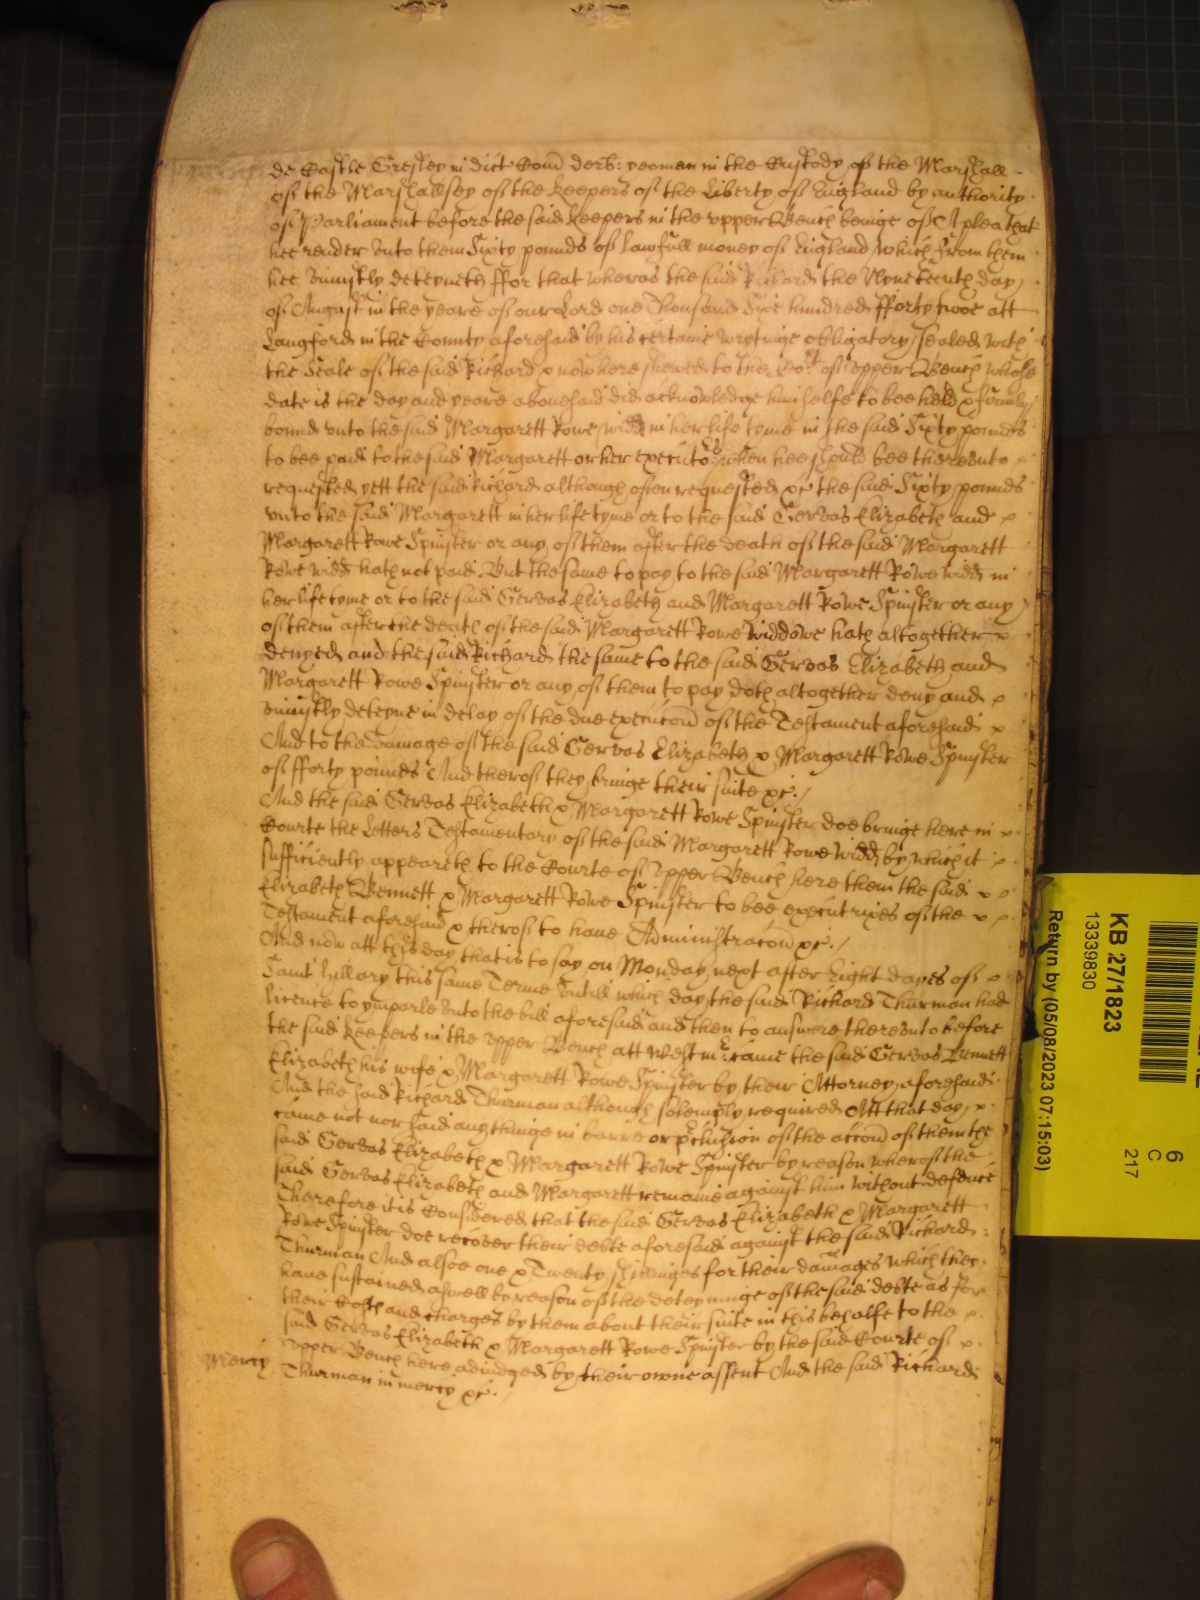 de Castle Gresley in dict Com derb: yeoman in the Custody of the Marshall
of the Marshallsey of the keepers of the Liberty of England by authority
of Parliament before the said keepers in the vpper Bench beinge of A plea that
hee render vnto them Sixty pounds of lawfull money of England which from them
hee vniustly deteyneth ffor that wheras the said Richard the Nyneteenth day
of August in the yeare of our Lord one Thousand Sixe hundred fforty twoe att
Langford in the County aforesaid by his certaine wrytinge obligatory sealed with
the Seale of the said Richard & now here shewed to the Cort of vpper Bench whose
date is the day and yeare abouesaid did acknowledge himselfe to bee held & firmely
bound vnto the said Margarett Rowe widd in her life tyme in the said Sixty pounds
to bee paid to the said Margarett or her executors when hee should bee therevnto
requested yett the said Richard although often requested &c the said Sixty pounds
vnto the said Margarett in her life tyme or to the said Gervas Elizabeth and
Margarett Rowe Spinster or any of them after the death of the said Margarett
Rowe widd hath not paid But the same to pay to the said Margarett Rowe widd in
her life tyme or to the said Gervas Elizabeth and Margarett Rowe Spinster or any
of them after the death of the said Margarett Rowe widdowe hath altogether
denyed and the said Richard the same to the said Gervas Elizabeth and
Margarett Rowe Spinster or any of them to pay doth altogether deny and
vniustly deteyne in delay of the due execucon of the Testament aforesaid
And to the damage of the said Gervas Elizabeth & Margarett Rowe Spinster
of fforty pounds And therof they bringe their suite &c./
And the said Gervas Elizabeth & Margarett Rowe Spinster doe bringe here in
Courte the Letters Testamentary of the said Margarett Rowe widd by which it
sufficiently appeareth to the Courte of vpper Bench here them the said
Elizabeth Bennett & Margarett Rowe Spinster to bee executrixes of the
Testament aforesaid & therof to haue Administracon &c./
And now att this day that is to say on Monday next after Eight dayes of
Saint Hillary this same Terme vntill which day the said Richard Thurman had
licence to ymparle vnto the bill aforesaid and then to answere therevnto before
the said keepers in the vpper Bench att Westmr: came the said Gervas Bennett
Elizabeth his wife & Margarett Rowe Spinster by their Attorney aforesaid
And the said Richard Thurman although solemply required Att that day
came not nor said any thinge in barre or preclusion of the accon of them the
said Gervas Elizabeth & Margarett Rowe Spinster by reason wherof the
said Gervas Elizabeth and Margarett remaine against him without defence
Therefore it is Considered that the said Gervas Elizabeth & Margarett
Rowe Spinster doe recover their debte aforesaid against the said Richard
Thurman And alsoe one & Twenty shillinges for their damages which they
haue sustained aswell by reason of the deteyninge of the said debte as for
their Costs and charges by them about their suite in this behalfe to the
said Gervas Elizabeth & Margarett Rowe Spinster by the said Courte of
vpper Bench here adiudged by their owne assent And the said Richard
Mercy Thurman in mercy &c./
KB 27/1823
13339830
Return by (05/08/2023 07:15:03)
6
C
217